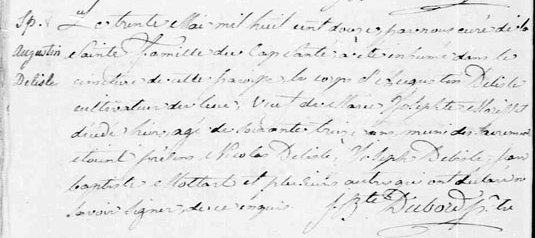 Sp.
Augustin
Delisle
Le trente Mai mil huit cent douze par nous curé de la
Sainte Famille du Cap Santé a été inhumé dans le
cimetiere de cette paroisse le corps d'Augustin Delisle
cultivateur du lieu, Veuf de Marie Josephte
décédé hier, agé de soixante treize ans, muni des sacremens
étoient présens Nicolas Delisle, Joseph Delisle jean
baptiste Mottart et plusieurs autres qui ont declaré ne
savoir signer de ce enquis J. Bte Dubord Ptre